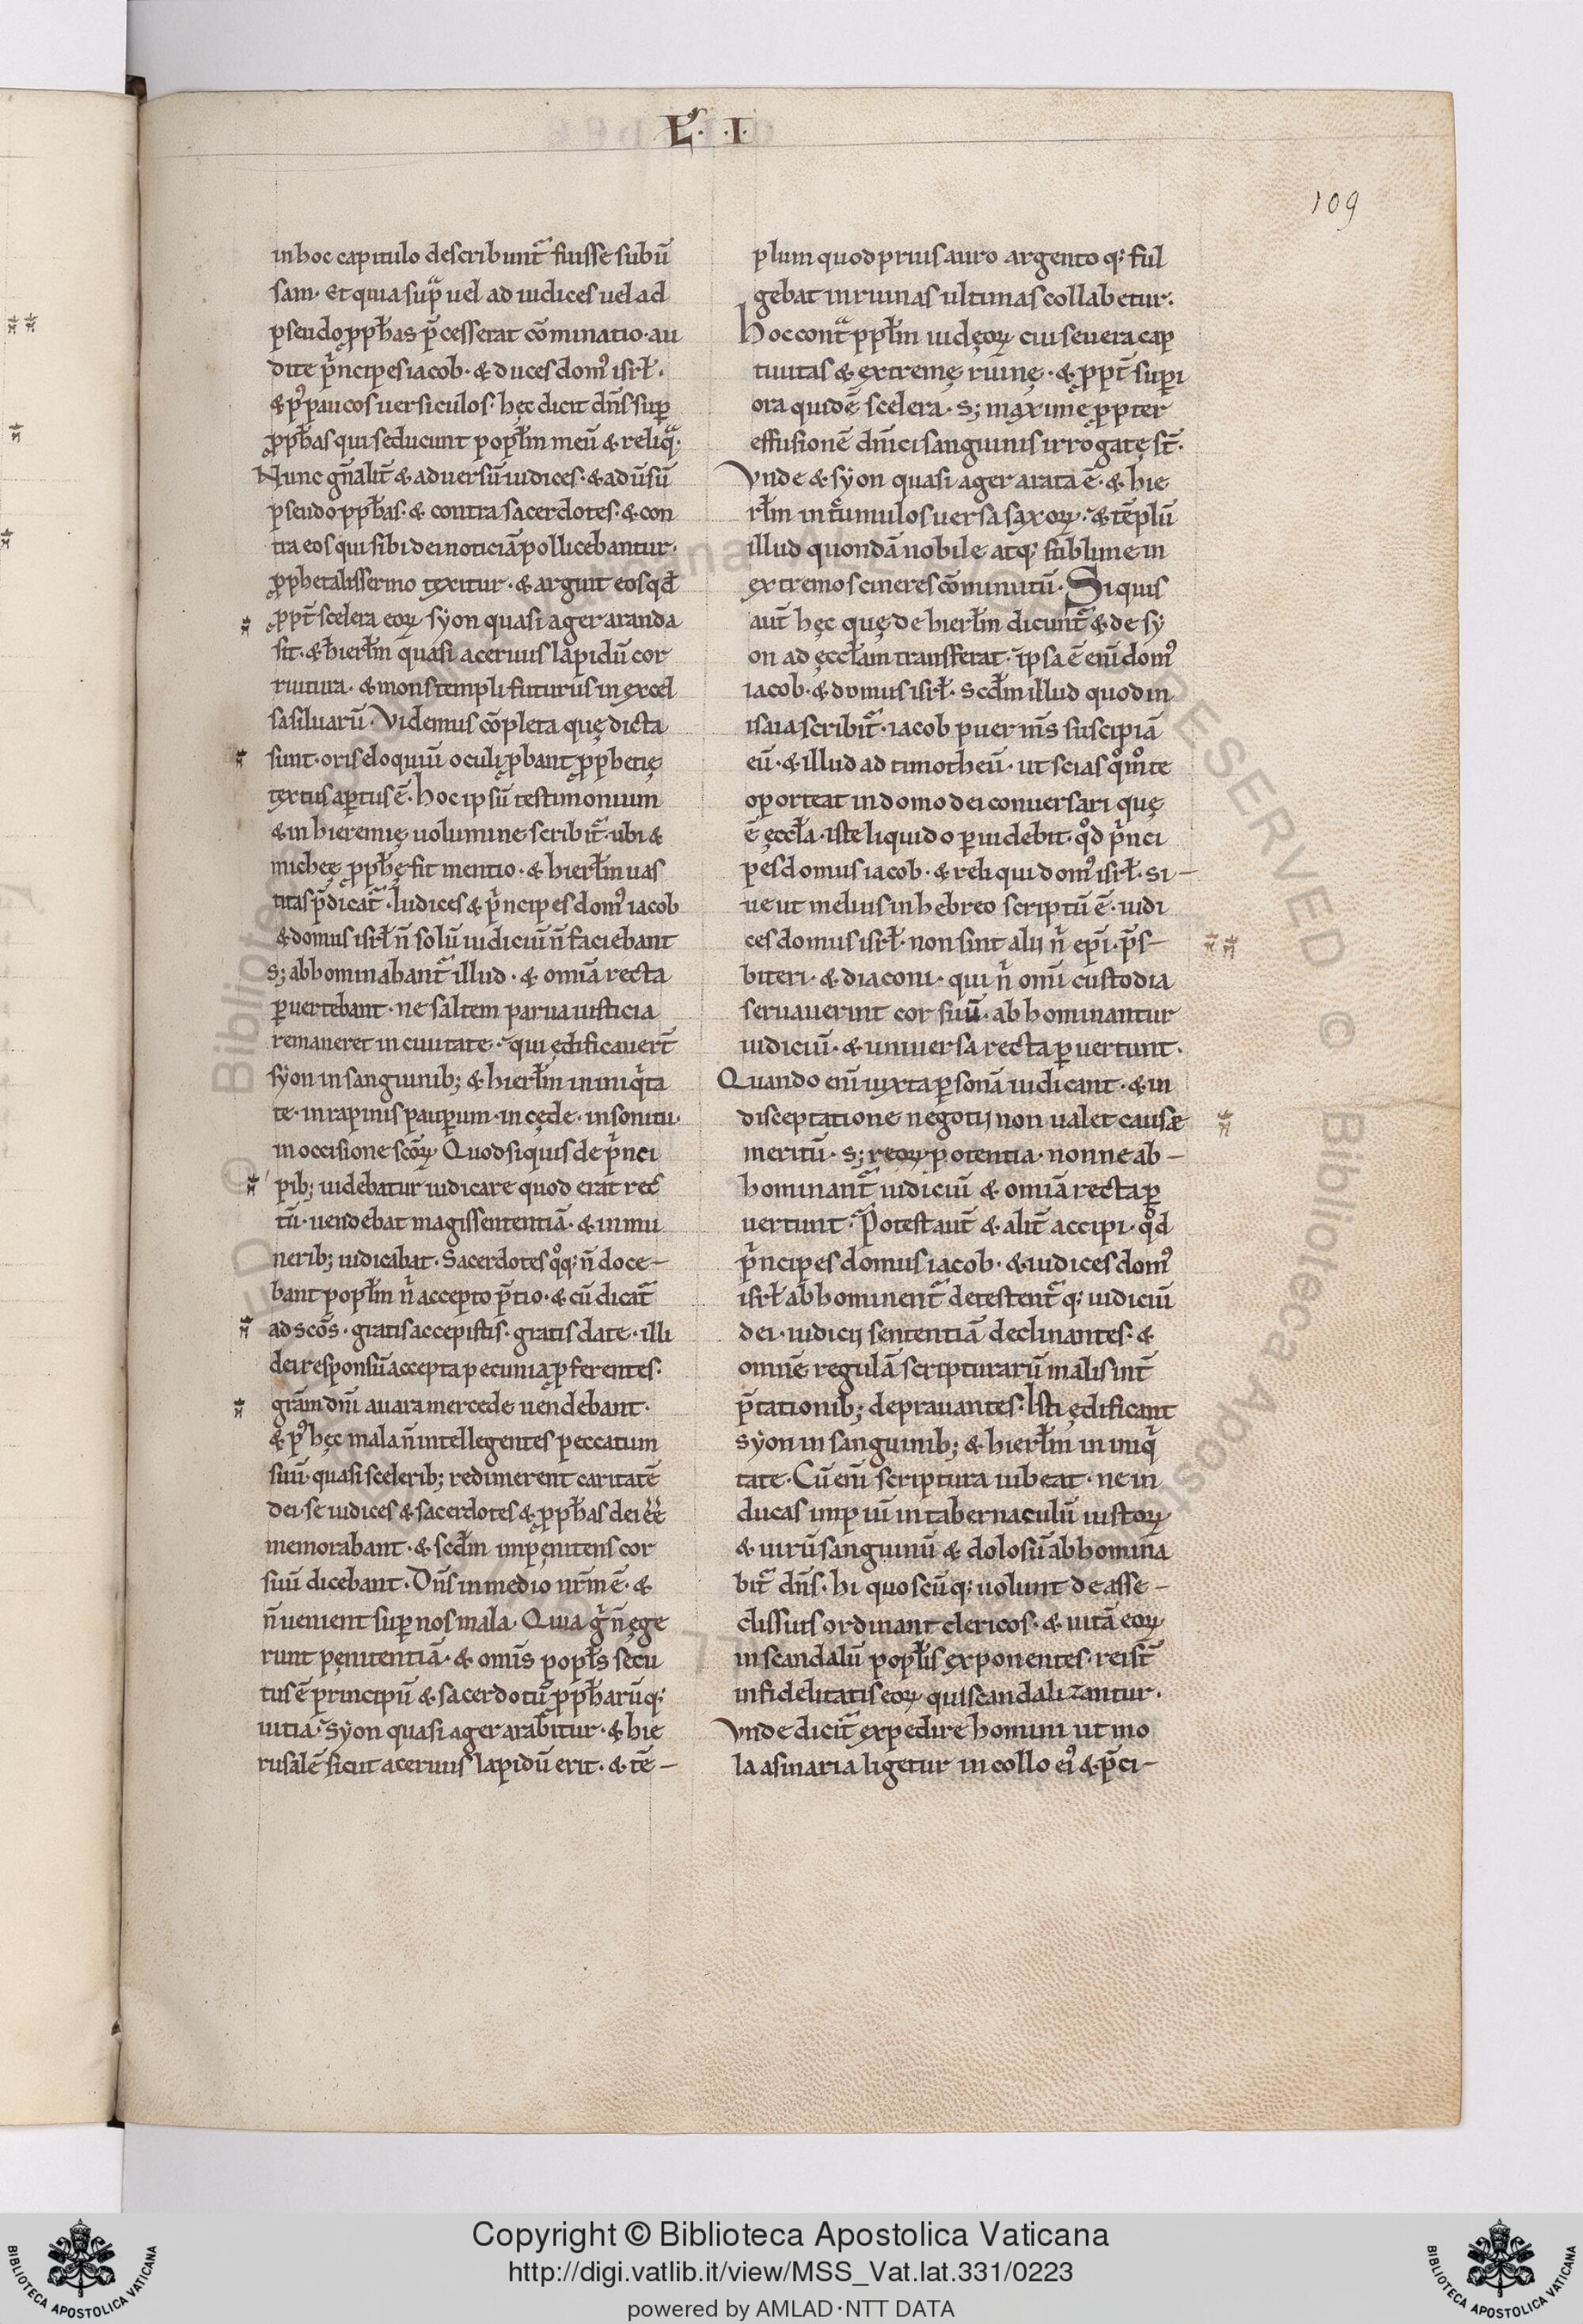 L. .I.
109
in hoc capitulo describunt̃ fuisse subũ
sam. Et quia sup̃ uel ad iudices uel ad
pseudopp̃has p̃cesserat cõminatio. au
dite p̃ncipes iacob. & duces domꝰ isrł.
& pꝰ paucos uersiculos. hęc dicit dñs suꝑ
ꝓph̃as qui seducunt popl̃m meũ & reliq̃.
Nunc gñalit̃ & aduersũ iudices. & adũsũ
pseudopp̃has. & contra sacerdotes. & con
tra eos qui sibi dei noticiã pollicebantur.
ꝓphetalis sermo texitur. & arguit eos qđ
ꝓpt̃ scelera eoꝝ syon quasi ager aranda
sit. & hierl̃m quasi aceruus lapidũ cor
ruitura. & mons templi futurus in excel
sa siluarũ. Videmus cõpleta quę dicta
sunt. oris eloquiũ oculi ꝓbant ꝓphetię
textus aꝑtus ẽ. hoc ipsũ testimonium
& in hieremię uolumine scribit̃. ubi &
micheę ꝓph̃ę fit mentio. & hierl̃m uas
titas p̃dicat̃. Iudices & p̃ncipes domꝰ iacob
& domus isrł ñ solũ iudiciũ ñ faciebant
s; abhominabant̃ illud. & omĩa recta
ꝑuertebant. ne saltem parua iusticia
remaneret in ciuitate. qui ędificauert̃
syon in sanguinib; & hierl̃m in iniq̃ta
te. in rapinis pauꝑum. in cęde. in sonitu.
in occisione scõꝝ. Quod si quis de p̃nci
pib; uidebatur iudicare quod erat rec
tũ. uendebat magis sententiã. & in mu
nerib; iudicabat. Sacerdotes qͦq; ñ doce-
bant popl̃m ñ accepto p̃tio. & cũ dicat̃
ad scõs. gratis accepistis. gratis date. illi
dei responsũ accepta pecunia ꝓferentes.
grãm dñi auara mercede uendebant.
& pꝰ hęc mala ñ intellegentes peccatum
suũ. quasi scelerib; redimerent caritatẽ
dei. se iudices & sacerdotes & ꝓph̃as dei ẽẽ
memorabant. & scđm impęnitens cor
suũ dicebant. Dñs in medio nrm̃ ẽ. &
ñ uenient suꝑ nos mala. Quia g̃ ñ ęge
runt pęnitentiã. & omĩs popl̃s secu
tus ẽ principũ & sacerdotũ ꝓph̃arũq;
uitia. syon quasi ager arabitur. & hie
rusalẽ sicut aceruus lapidũ erit. & tẽ-
plum quod prius auro argentoq; ful
gebat in ruinas ultimas collabetur.
hoc cont̃ popl̃m iudęoꝝ cui seuera cap
tiuitas & extremę ruinę. & ꝓpt̃ supi
ora quidẽ scelera. s; maxime ꝓpter
effusionẽ dñici sanguinis irrogatę st̃.
Vnde & syon quasi ager arata ẽ. & hie
rl̃m in tumulos uersa saxoꝝ. & tẽplũ
illud quondã nobile atq; sublime in
extremos cineres cõminutũ. Si quis
aut̃ hęc quę de hierl̃m dicunt̃ & de sy
on ad ęccl̃am transferat. ipsa ẽ enĩ domꝰ
iacob. & domus isrł. Scđm illud quod in
isaia scribit̃. iacob puer ms̃ suscipiã
eũ. & illud ad timotheũ. ut scias qͦmͦ te
oporteat in domo dei conuersari quę
ẽ ęccl̃a. iste liquido ꝑuidebit. qͦd p̃nci
pes domus iacob. & reliqui domꝰ isrł. si-
ue ut melius in hebreo scriptũ ẽ. iudi
ces domus isrł. non sint alij ñ epĩ. p̃s-
biteri. & diaconi. qui ñ omĩ custodia
seruauerint cor suũ. abhominantur
iudiciũ. & uniuersa recta ꝑuertunt.
Quando enĩ iuxta ꝑsonã iudicant. & in
disceptatione negotij non ualet causæ
meritũ. s; reoꝝ potentia. nonne ab-
hominant̃ iudiciũ & omĩa recta ꝑ
uertunt. Potest aut̃ & alit̃ accipi. qͦd
p̃ncipes domus iacob. & iudices domꝰ
isrł abhominent̃ detestent̃q; iudiciũ
dei. iudicij sententiã declinantes. &
omnẽ regulã scripturarũ malis int̃
p̃tationib; deprauantes. Isti ędificant
syon in sanguinib; & hierl̃m in iniq̃
tate. Cũ enĩ scriptura iubeat. ne in
ducas impiũ in tabernaculũ iustoꝝ
& uirũ sanguinũ & dolosũ abhomina
bit̃ dñs. hi quoscũq; uolunt de asse-
clis suis ordinant clericos. & uitã eoꝝ
in scandalũ popl̃is exponentes. rei st̃
infidelitatis eoꝝ qui scandalizantur.
Vnde dicit̃ expedire homini ut mo
la asinaria ligetur in collo eiꝰ & p̃ci-
Copyright © Biblioteca Apostolica Vaticana
http://digi.vatlib.it/view/MSS_Vat.lat.331/0223
powered by AMLAD·NTT DATA